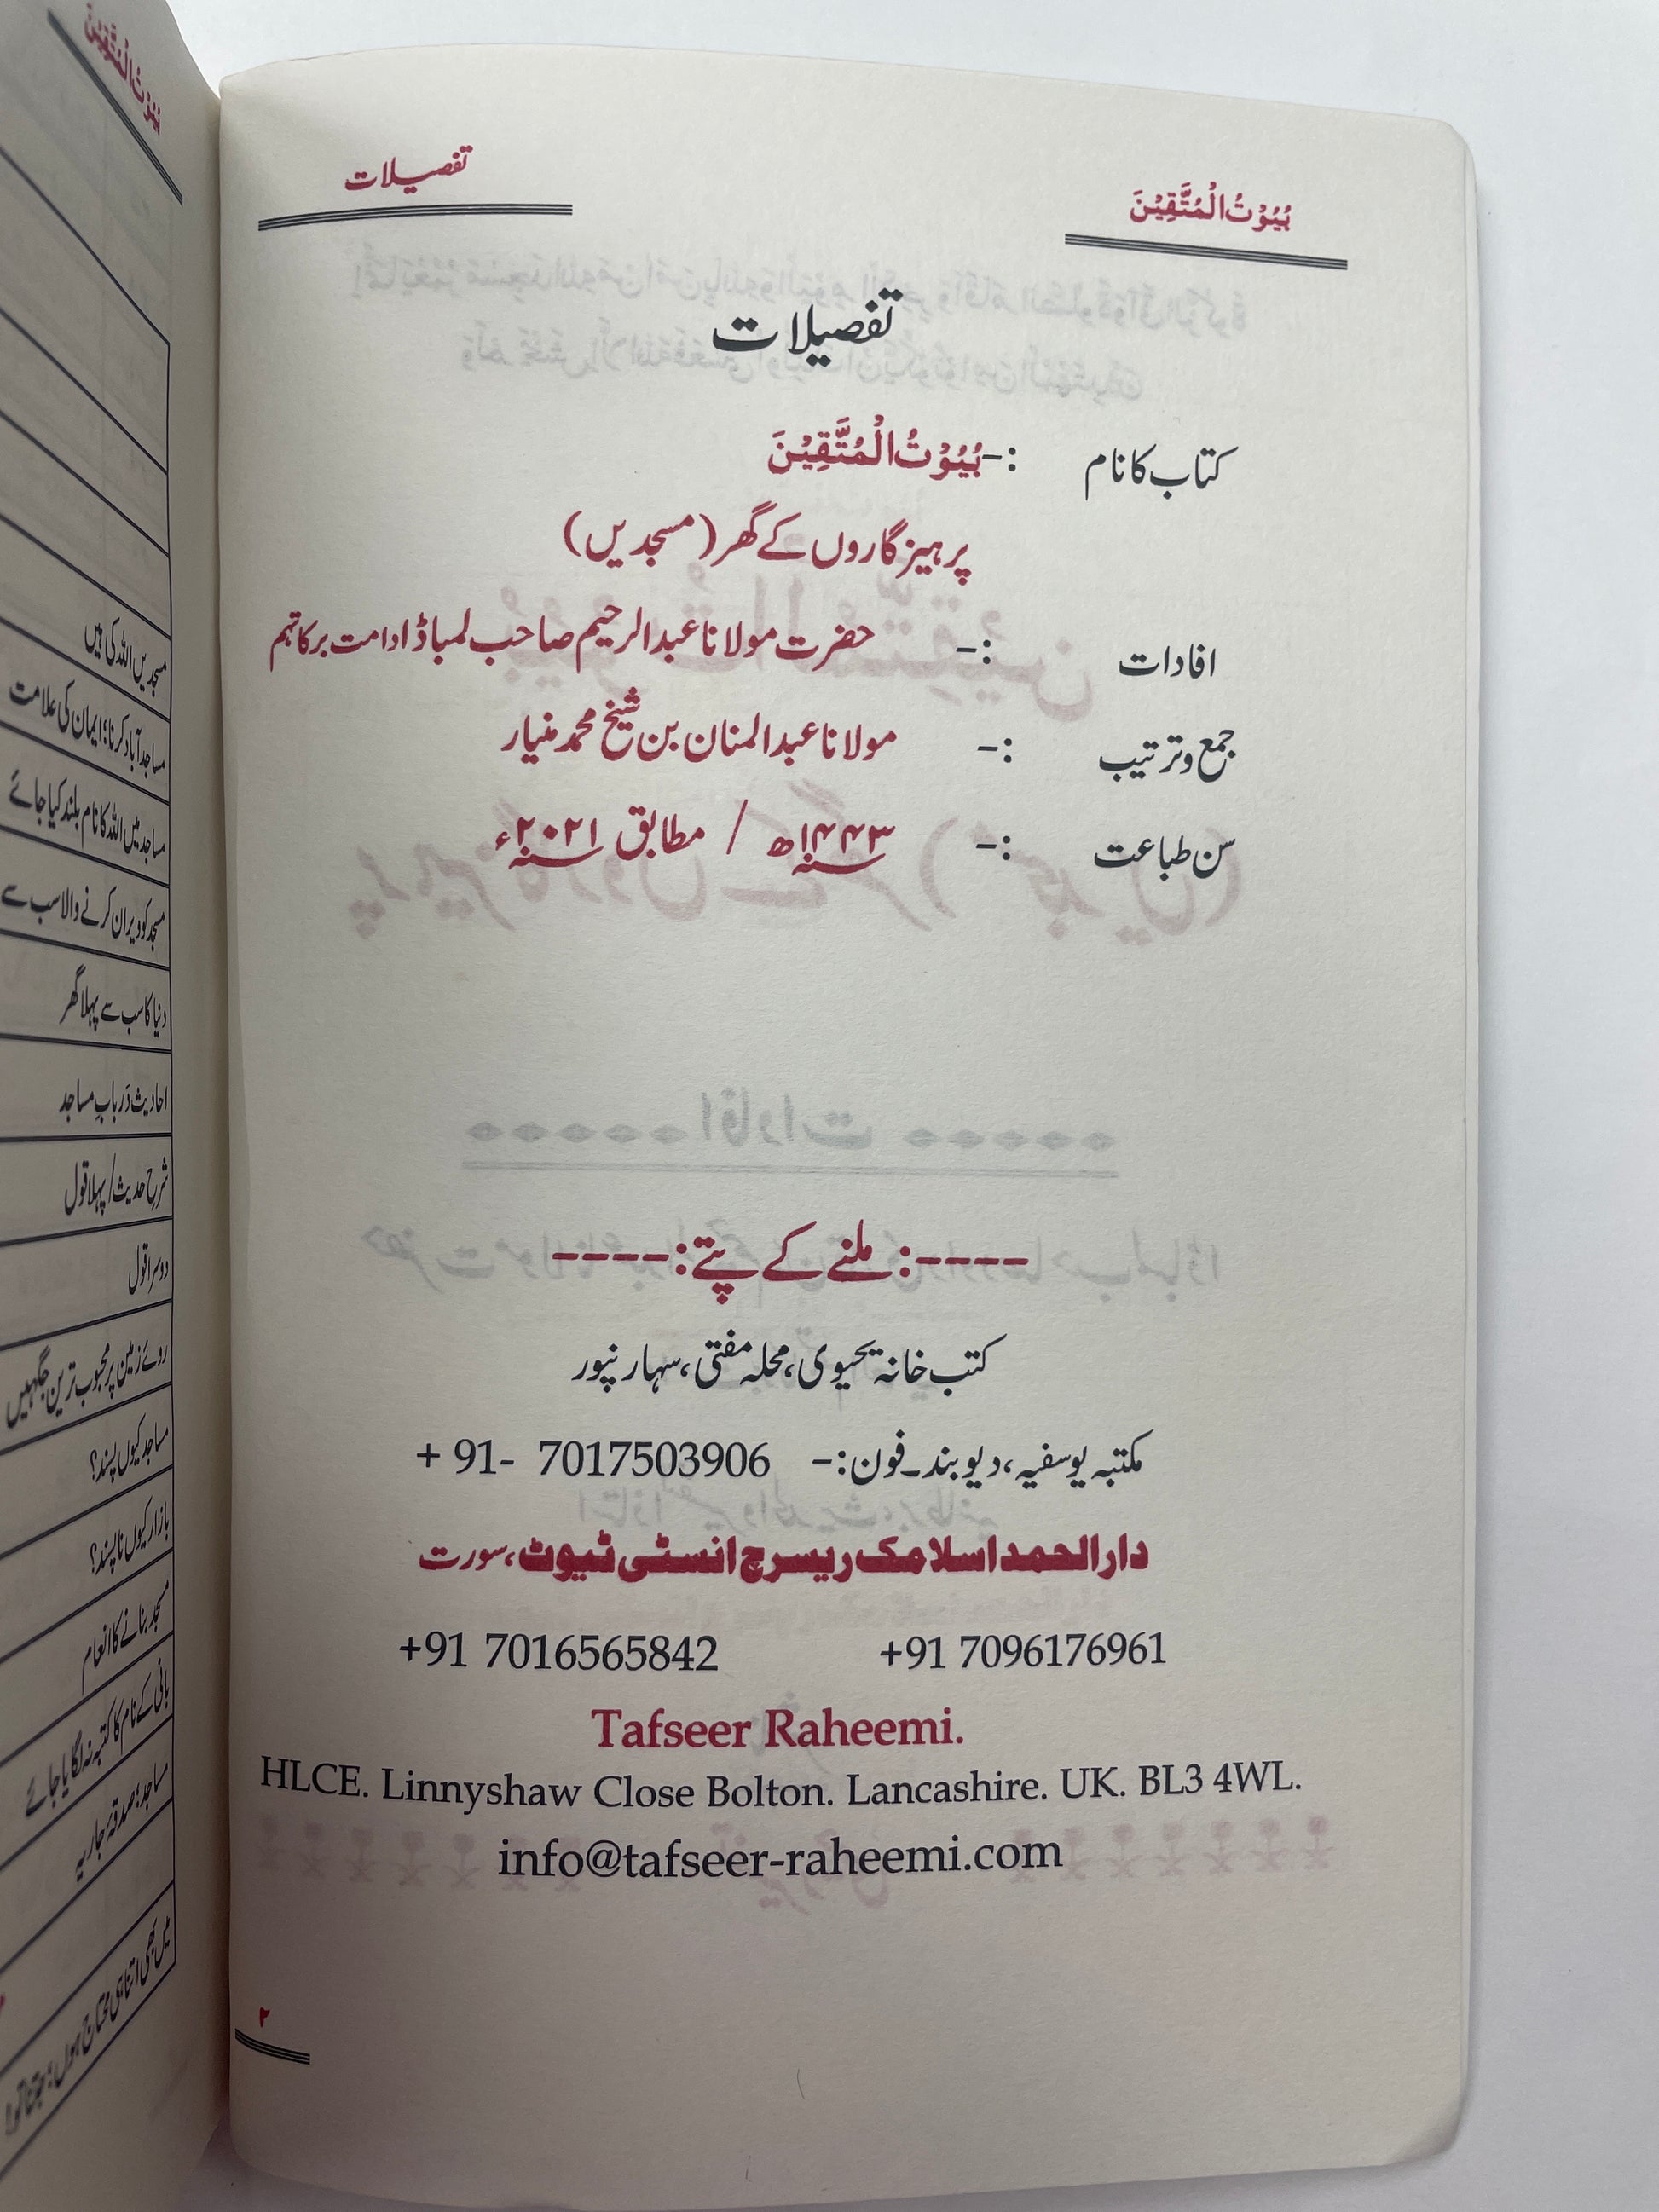 بُيُوْتُ الْمُتَّقِيْنَ
تفصیلات
تفصیلات
کتاب کا نام :- بُيُوْتُ الْمُتَّقِيْنَ
پرہیزگاروں کے گھر (مسجدیں)
افادات :- حضرت مولانا عبدالرحیم صاحب لمباڈا دامت برکاتہم
جمع و ترتیب :- مولانا عبدالمنان بن شیخ محمد منیار
سن طباعت :- ۱۴۴۳ھ / مطابق ۲۰۲۱ء
----: ملنے کے پتے :----
کتب خانہ یحیوی، محلہ مفتی، سہارنپور
مکتبہ یوسفیہ، دیوبند۔ فون :- + 91- 7017503906
دارالحمد اسلامک ریسرچ انسٹی ٹیوٹ، سورت
+91 7016565842 +91 7096176961
Tafseer Raheemi.
HLCE. Linnyshaw Close Bolton. Lancashire. UK. BL3 4WL.
info@tafseer-raheemi.com
۲
بُيُوْتُ الْمُتَّقِيْنَ
مسجدیں اللہ کی ہیں
مساجد آباد کرنا؛ ایمان کی علامت
مساجد میں اللہ کا نام بلند کیا جائے
مسجد کو ویران کرنے والا سب سے
دنیا کا سب سے پہلا گھر
احادیث دَر بابِ مساجد
شرحِ حدیث / پہلا قول
دوسرا قول
روئے زمین پر محبوب ترین جگہیں
مساجد کیوں پسند؟
بازار کیوں ناپسند؟
مسجد بنانے کا انعام
بانی کے نام کا کتبہ نہ لگایا جائے
مساجد؛ صدقۂ جاریہ
میں بھی اتنا ہی محتاج ہوں؛ جتنا تو!